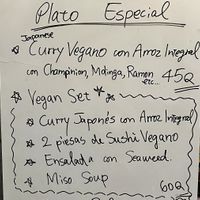 Plato Especial
Japanese
☆ Curry Vegano con Arroz Integral
con Champiñon, Molinga, Ramon etc... 45Q
☆ Vegan Set
☆ Curry Japonés con Arroz Integral
☆ 2 piesas de Sushi Vegano
☆ Ensalada con Seaweed.
☆ Miso Soup
60Q